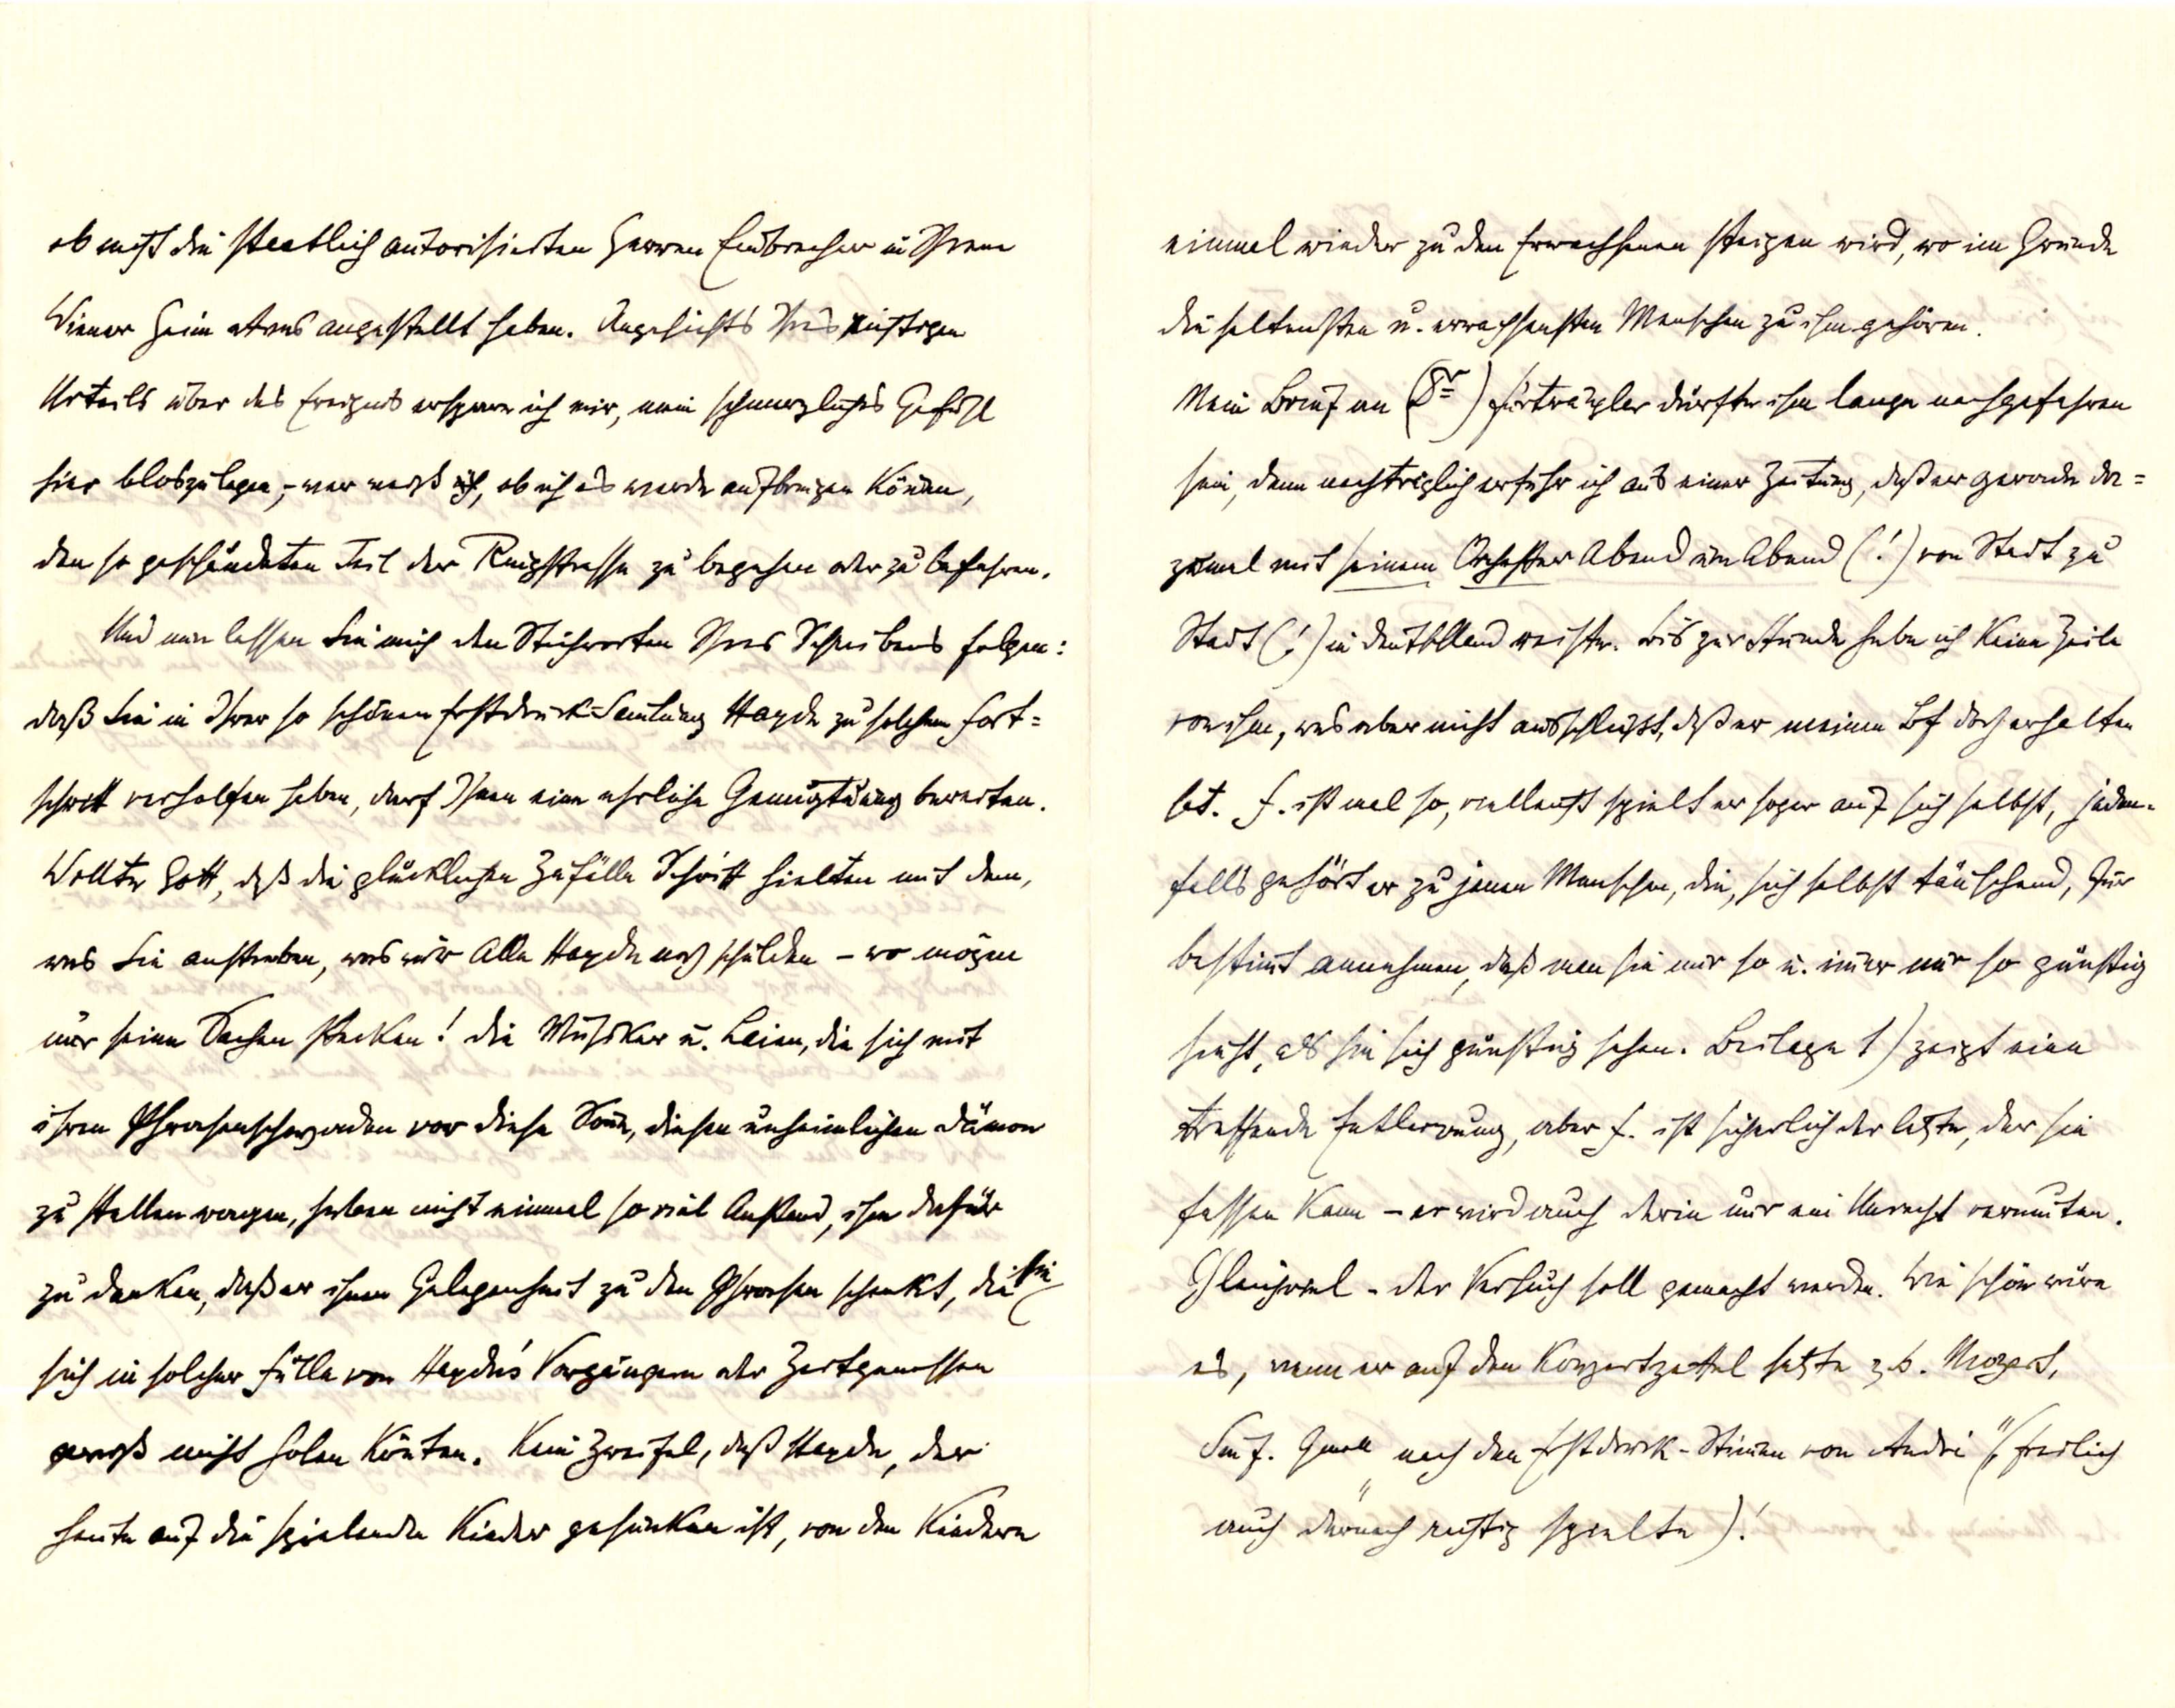 ob nicht die staatlich autorisierten Herren Einbrecher in Ihrem
Wiener Heim etwas angestellt haben. Angesichts Ihres richtigen
Urteils über das Ereignis erspare ich mir, mein schmerzliches Gefühl
hier bloszulegen, – wer weiß, ob ich es werde aufbringen können,
den so geschändeten Teil der Ringstrasse zu begehen oder zu befahren.
Und nun lassen Sie mich den Stichworten Ihres Schreibens folgen:
daß Sie in Ihrer so schönen Erstdruck-Sam̅lung Haydn zu solchem Fort=
schritt verholfen haben, darf Ihnen eine ehrliche Genugtuung bereiten.
Wollte Gott, daß die glücklichen Zufälle Schritt hielten mit dem,
was Sie anstreben, was wir Alle Haydn noch schulden – wo mögen
nur seine Sachen stecken! Die Musiker u. Laien, die sich mit
ihren Phrasenschwaden vor diese Son̅e, diesen unheimlichen Dämon
zu stellen wagen, haben nicht einmal so viel Anstand, ihm dafür
zu danken, daß er ihnen Gelegenheit zu den Phrasen schenkt, die sie
sich in solcher Fülle von Haydn's Vorgängern oder Zeitgenossen
gewiß nicht holen kön̅ten. Kein Zweifel, daß Haydn, der
heute auf die spielenden Kinder gesunken ist, von den Kindern
einmal wieder zu den Erwachsenen steigen wird, wo im Grunde
die seltensten u. erwachsensten Menschen zu ihm gehören.
Mein Brief an (Dr) Furtwängler dürfte ihm lange nachgefahren
sein, denn nachträglich erfuhr ich aus einer Zeitung, daß er gerade da=
zumal mit seinem Orchester Abend um Abend (!) von Stadt zu
Stadt (!) in Deutschland reiste. Bis zur Stunde habe ich keine Zeile
von ihm, was aber nicht ausschließt, daß er meinen Bf doch erhalten
hat. F. ist mal so, vielleicht spielt er sogar auf sich selbst, jeden=
falls gehört er zu jenen Menschen, die, sich selbst täuschend, für
bestim̅t annehmen, daß man sie nur so u. im̅er nur so günstig
sieht, als sie sich günstig sehen. Beilage 1) zeigt eine
treffende Entlarvung, aber F. ist sicherlich der letzte, der sie
fassen kann – er wird auch darin nur ein Unrecht vermuten.
Gleichviel – der Versuch soll gemacht werden. Wie schön wäre
es, wenn er auf den Konzertzettel setzte z. B. Mozart,
Sinf. Gmoll „nach den Erstdruck-Stim̅en von André" (, freilich
auch darnach richtig spielte)!